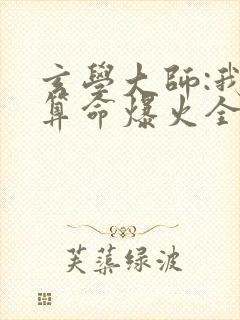 玄學大師:我
算命爆火全
芙蕖绿波